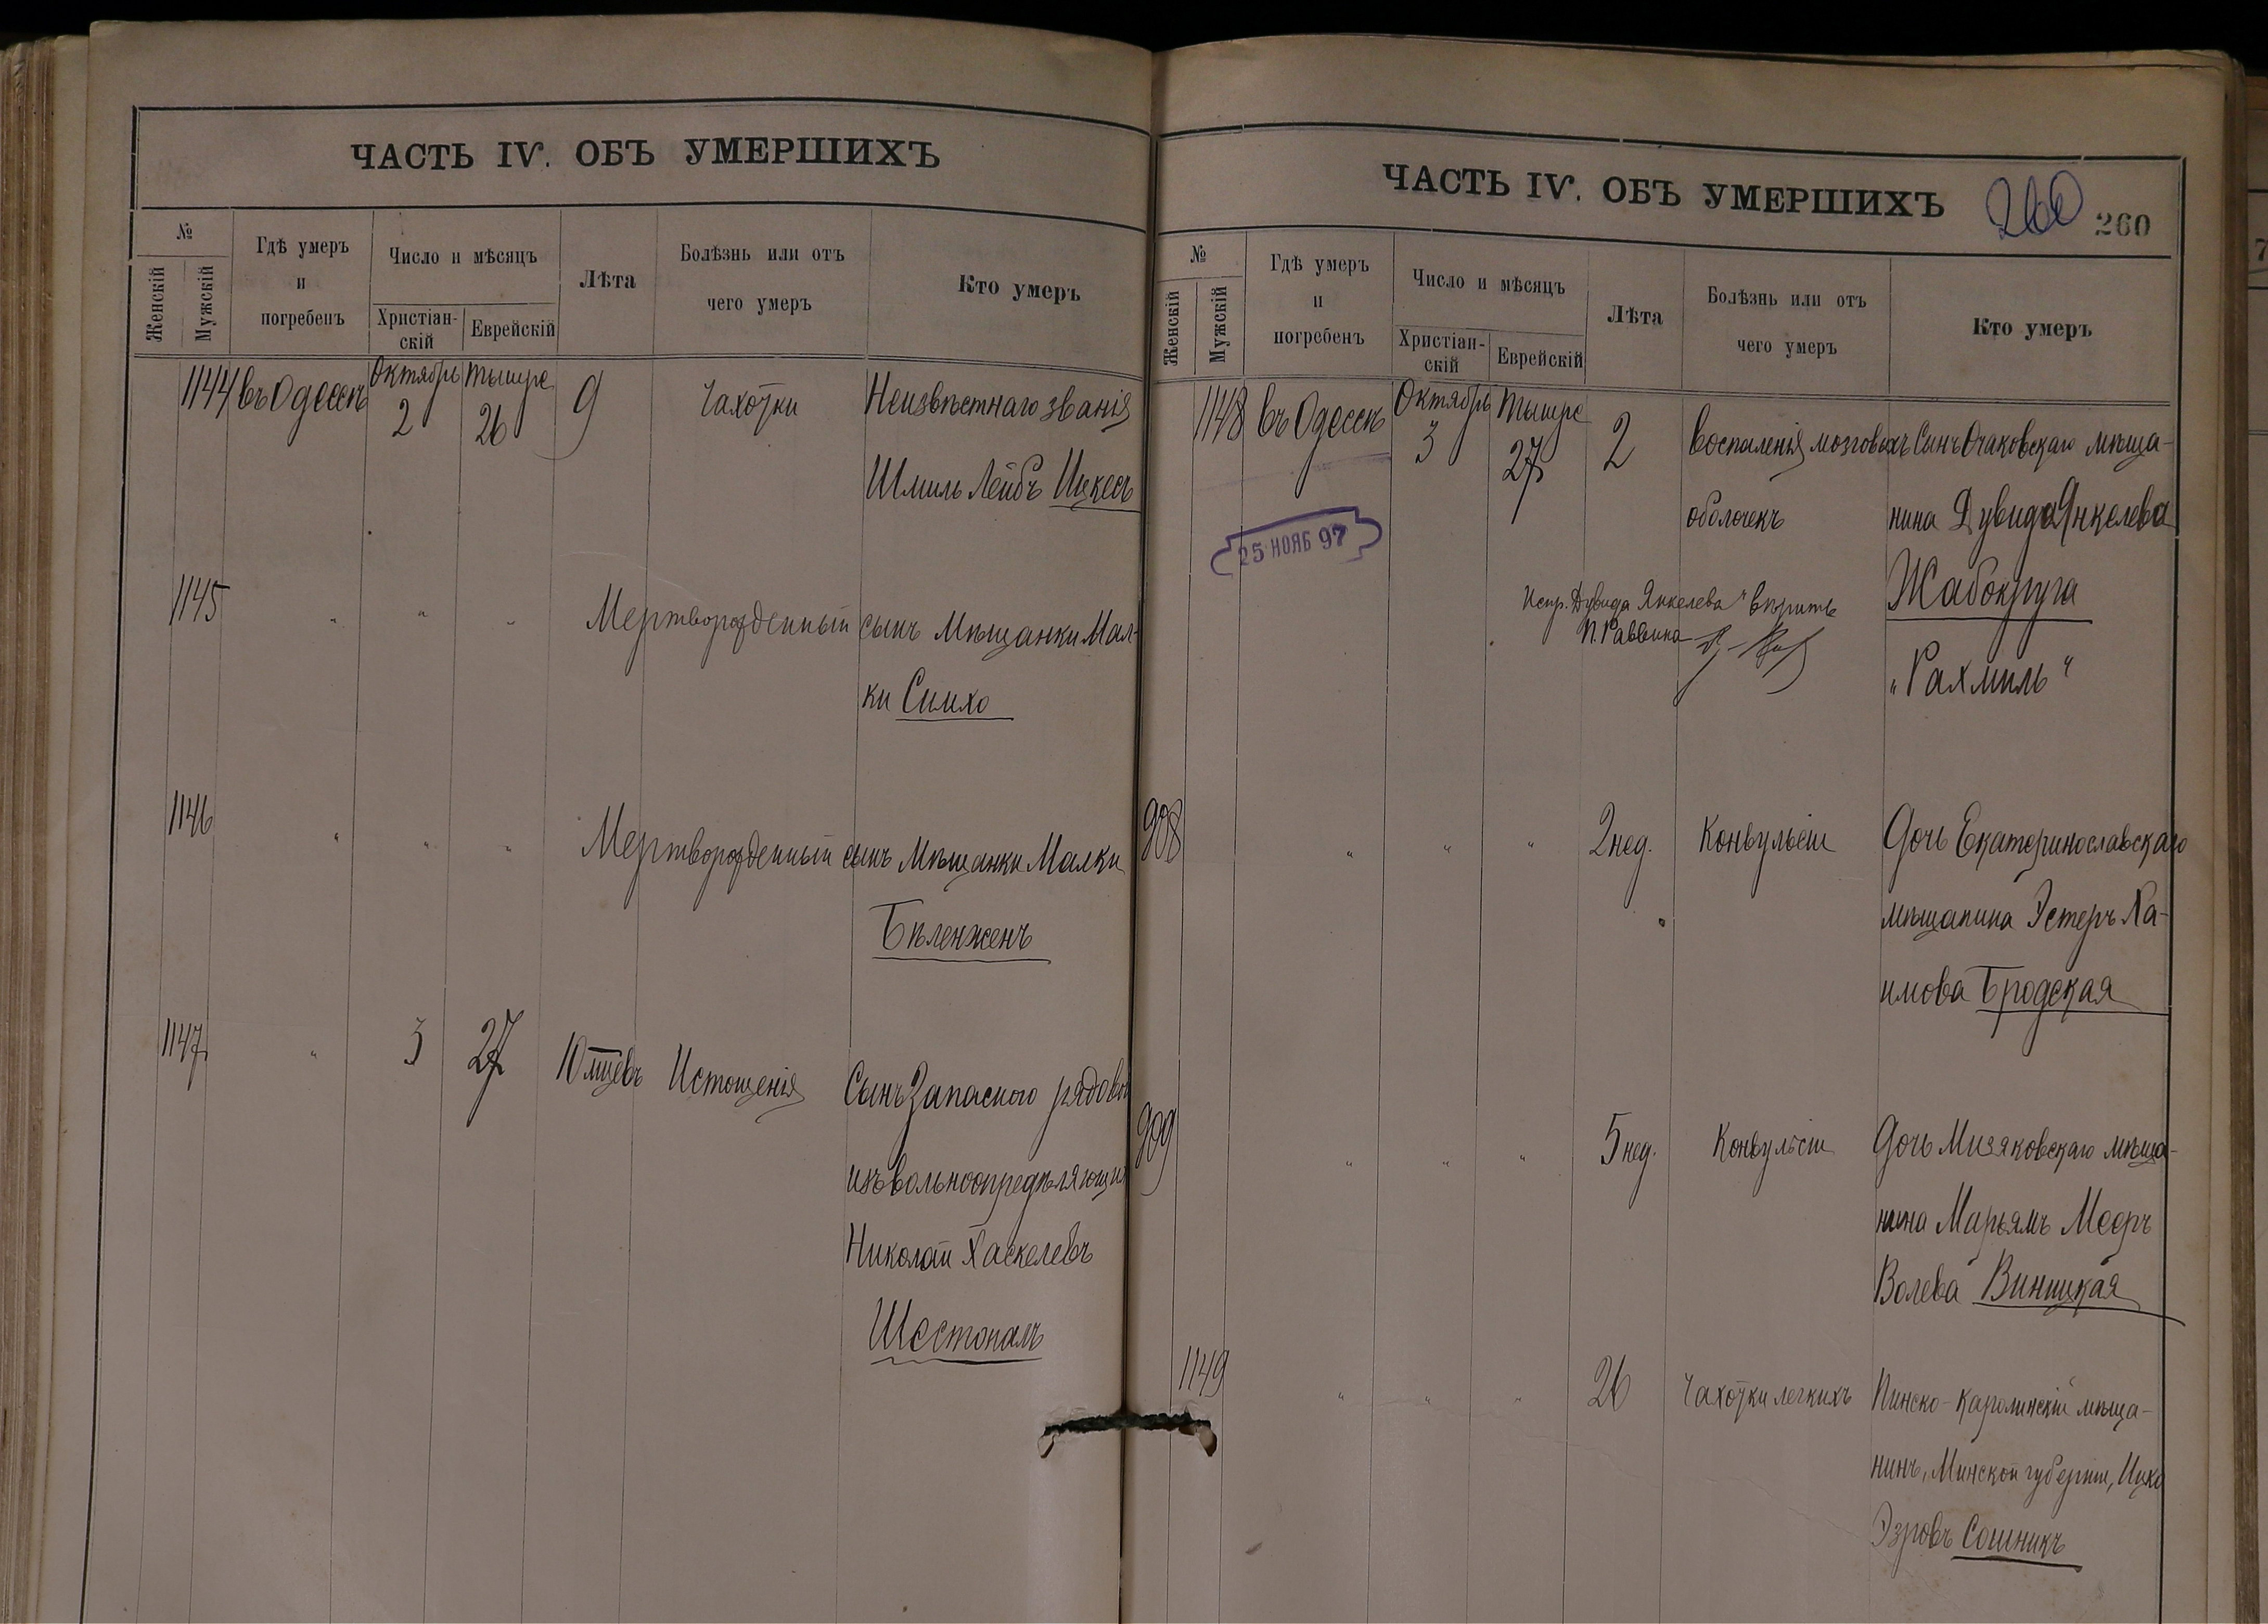 ЧАСТЬ IV. ОБЪ УМЕРШИХЪ
№
Женскій
Мужскій
Гдѣ умеръ
и
погребенъ
Число и мѣсяцъ
Христіан-
скій
Еврейскій
Лѣта
Болѣзнь или отъ
чего умеръ
Кто умеръ
1144 въ Одессѣ Октябрь 2 Тышре 26 9 Чахотки Неизвѣстнаго званія
Шмиль Лейбъ Ицкесъ
1145 " " " Мертворожденный сынъ Мѣщанки Мал-
ки Симхо
1146 " " " Мертворожденный сынъ Мѣщанки Малки
Бѣленженъ
1147 " 3 27 10 мцевъ Истощенія Сынъ Запаснаго рядовог
изъ вольноопредѣляющих
Николай Хаскелевъ
Шестопалъ
ЧАСТЬ IV. ОБЪ УМЕРШИХЪ
260
260
№
Женскій
Мужскій
Гдѣ умеръ
и
погребенъ
Число и мѣсяцъ
Христіан-
скій
Еврейскій
Лѣта
Болѣзнь или отъ
чего умеръ
Кто умеръ
1148 въ Одессѣ Октябрь 3 Тышре 27 2 Воспаленія мозговыхъ Сынъ Очаковскаго мѣща-
оболочекъ нина Дувида Янкелева
25 НОЯБ 97
Испр. Дувида Янкелева" вѣрить Жабокруга
П. Раввина
"Рахмиль"
908 " " " 2 нед. Конвульсіи Дочь Екатеринославскаго
мѣщанина Эстеръ Ха-
имова Бродская
909 " " " 5 нед. Конвульсіи Дочь Мизяковскаго мѣща-
нина Марьямъ Мееръ
Волева Виницкая
1149 " " " 26 Чахотки легкихъ Пинско-Каролинскій мѣща-
нинъ, Минской губерніи, Ицко
Эзровъ Сошникъ